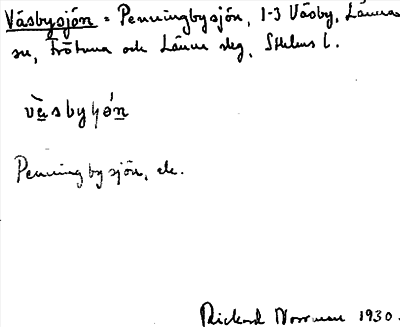 Väsbysjön = Penningbysjön, 1-3 Väsby, Länna
sn, Frötuna och Länna slg, Sthlms l.
väsbyʃǿn
Penningbysjön, ek.
Rickard Norrman 1930.